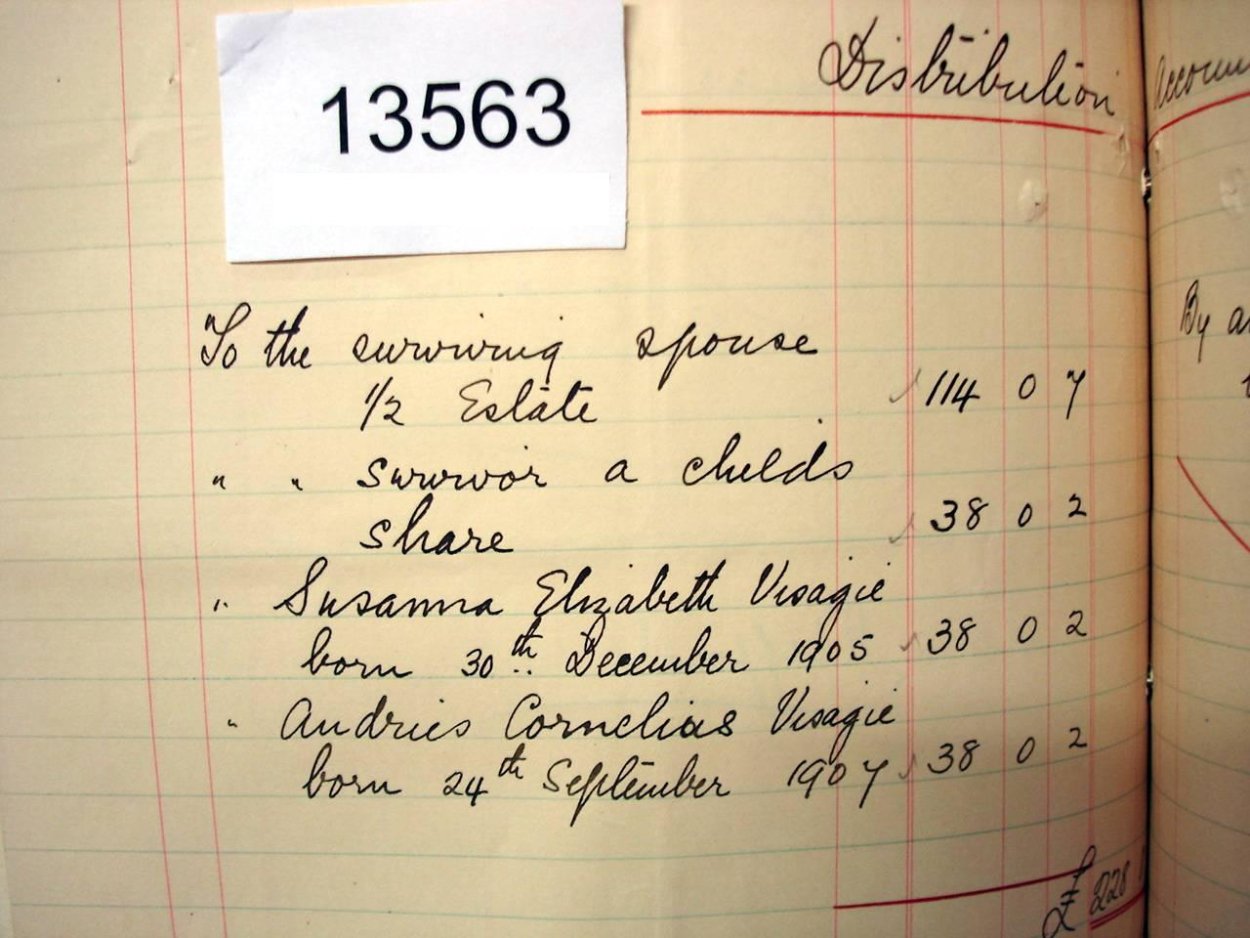 13563
Distribution
To the surviving spouse
1/2 Estate 114 0 7
" " Survivor a childs
share 38 0 2
" Susanna Elizabeth Visagie
born 30th December 1905 38 0 2
" Andries Cornelias Visagie
born 24th September 1907 38 0 2
£ 228
By